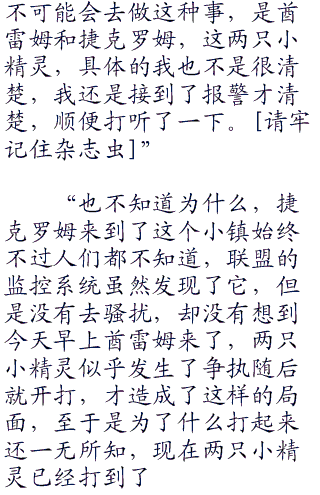 不可能会去做这种事，是酋
雷姆和捷克罗姆，这两只小
精灵，具体的我也不是很清
楚，我还是接到了报警才清
楚，顺便打听了一下。[请牢
记住杂志虫]”
“也不知道为什么，捷
克罗姆来到了这个小镇始终
不过人们都不知道，联盟的
监控系统虽然发现了它，但
是没有去骚扰，却没有想到
今天早上酋雷姆来了，两只
小精灵似乎发生了争执随后
就开打，才造成了这样的局
面，至于是为了什么打起来
还一无所知，现在两只小精
灵已经打到了